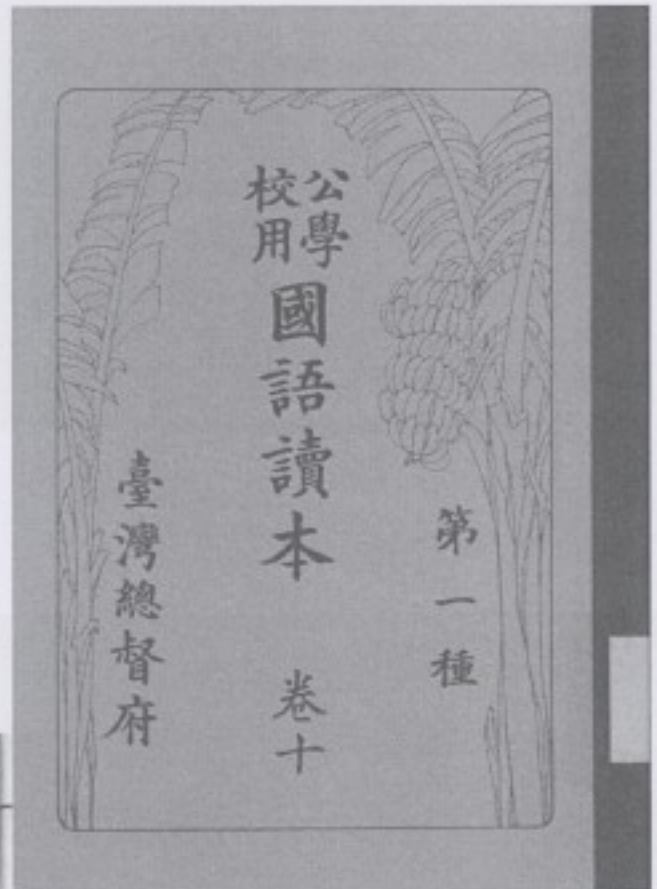 第一種
公學校用
國語讀本 卷十
臺灣總督府